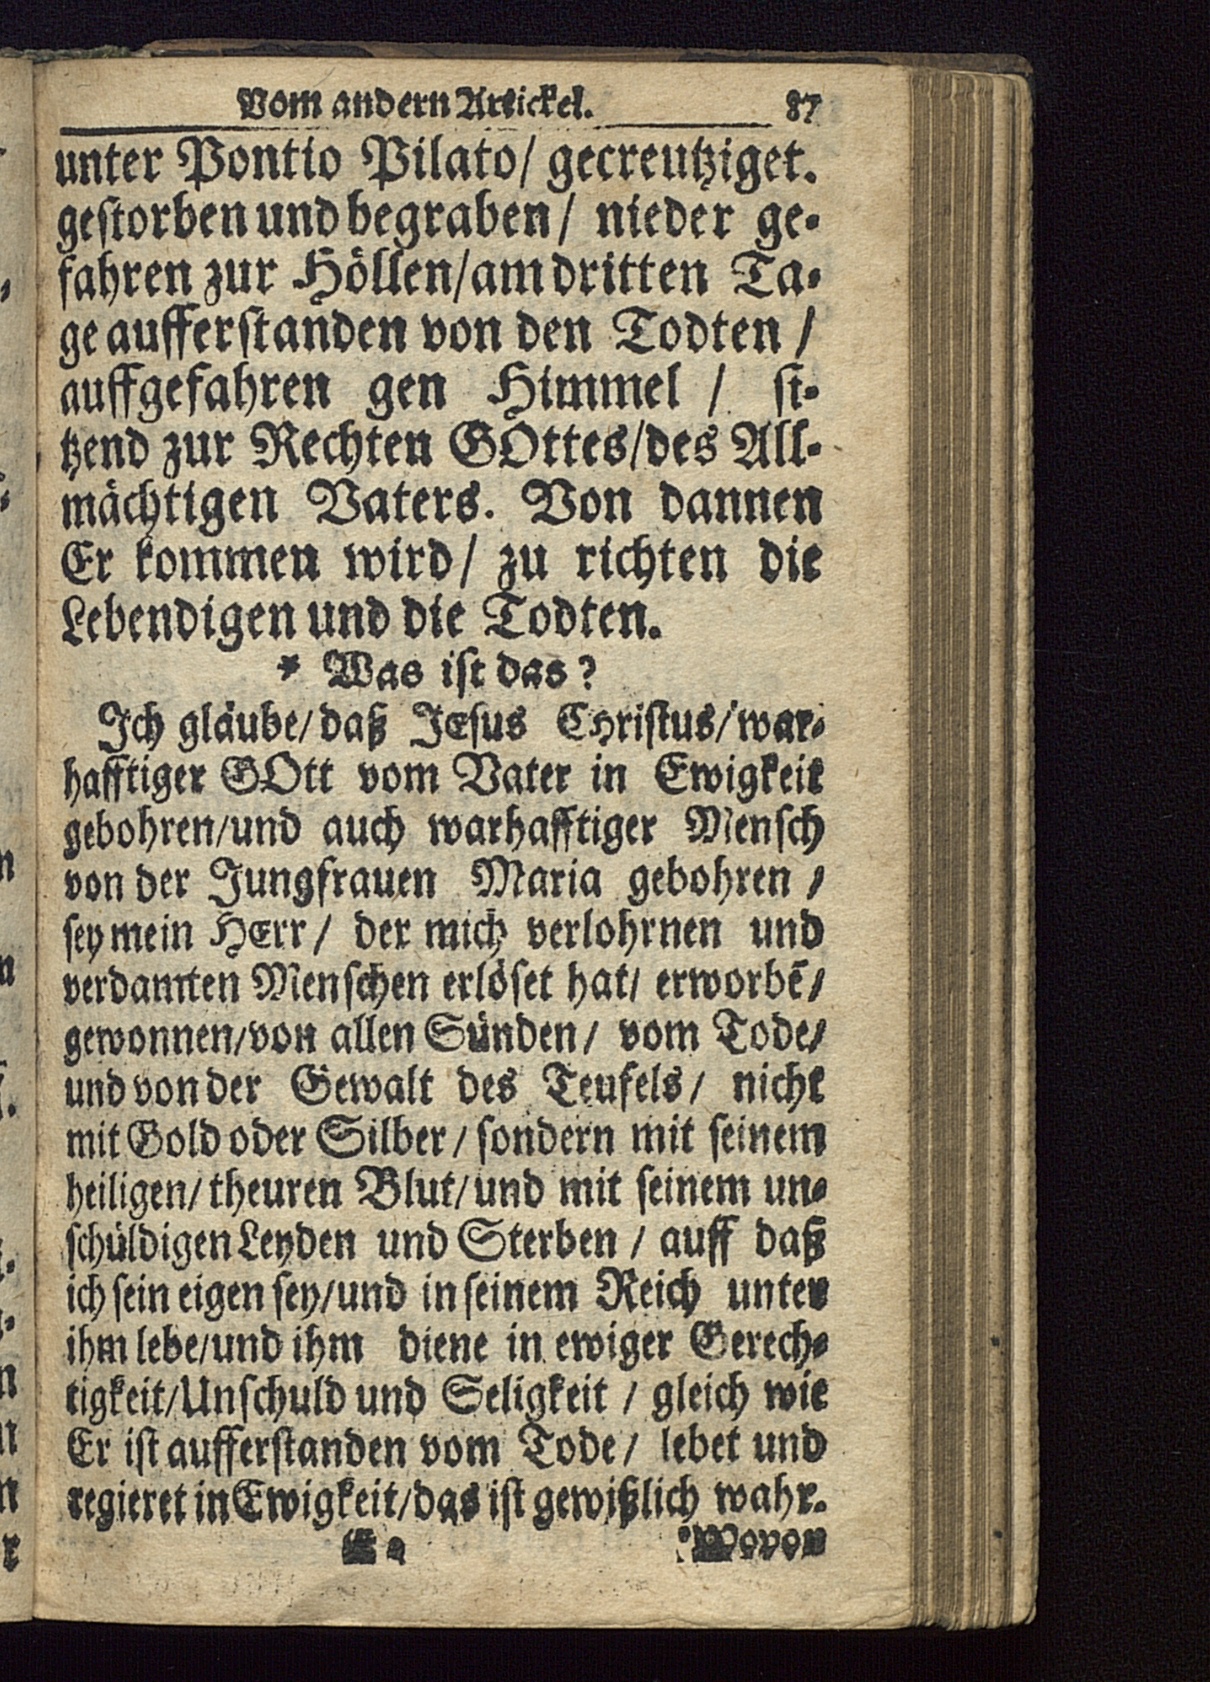 Vom andern Artickel. 87
unter Pontio Pilato/ gecreutziget.
gestorben und begraben/ nieder ge-
fahren zur Höllen/ am dritten Ta-
ge aufferstanden von den Todten /
auffgefahren gen Himmel / si-
tzend zur Rechten GOttes/ des All-
mächtigen Vaters. Von dannen
Er kommen wird/ zu richten die
Lebendigen und die Todten.
* Was ist das?
Ich gläube/ daß JEsus CHristus/ war-
hafftiger GOtt vom Vater in Ewigkeit
gebohren/ und auch warhafftiger Mensch
von der Jungfrauen Maria gebohren /
sey mein HErr/ der mich verlohrnen und
verdamten Menschen erlöset hat/ erworbē/
gewonnen/ von allen Sünden/ vom Tode/
und von der Gewalt des Teufels/ nicht
mit Gold oder Silber/ sondern mit seinem
heiligen/ theuren Blut/ und mit seinem un-
schüldigen Leyden und Sterben / auff daß
ich sein eigen sey/ und in seinem Reich unter
ihm lebe/ und ihm diene in ewiger Gerech-
tigkeit/ Unschuld und Seligkeit / gleich wie
Er ist aufferstanden vom Tode/ lebet und
regieret in Ewigkeit/ das ist gewißlich wahr.
Wovon